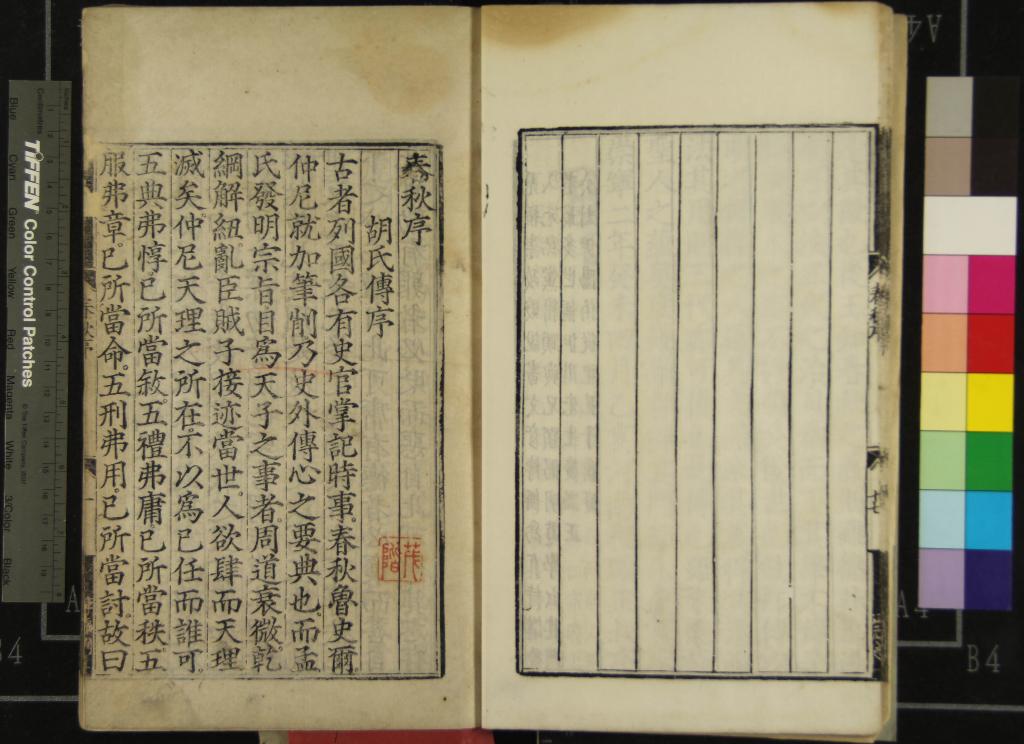 春秋序
胡氏傳序
古者列國各有史官掌記時事春秋魯史爾
仲尼就加筆削乃史外傳心之要典也而孟
氏發明宗旨目爲天子之事者周道衰微乾
綱解紐亂臣賊子接迹當世人欲肆而天理
滅矣仲尼天理之所在不以爲已任而誰可
五典弗惇已所當敘五禮弗庸已所當秩五
服弗章已所當命五刑弗用已所當討故曰
茂階
Inches
Centimetres
TIFFEN Color Control Patches
Blue
Cyan
Green
Yellow
Red
Magenta
White
3/Color
Black
A4
B4
A4
B4